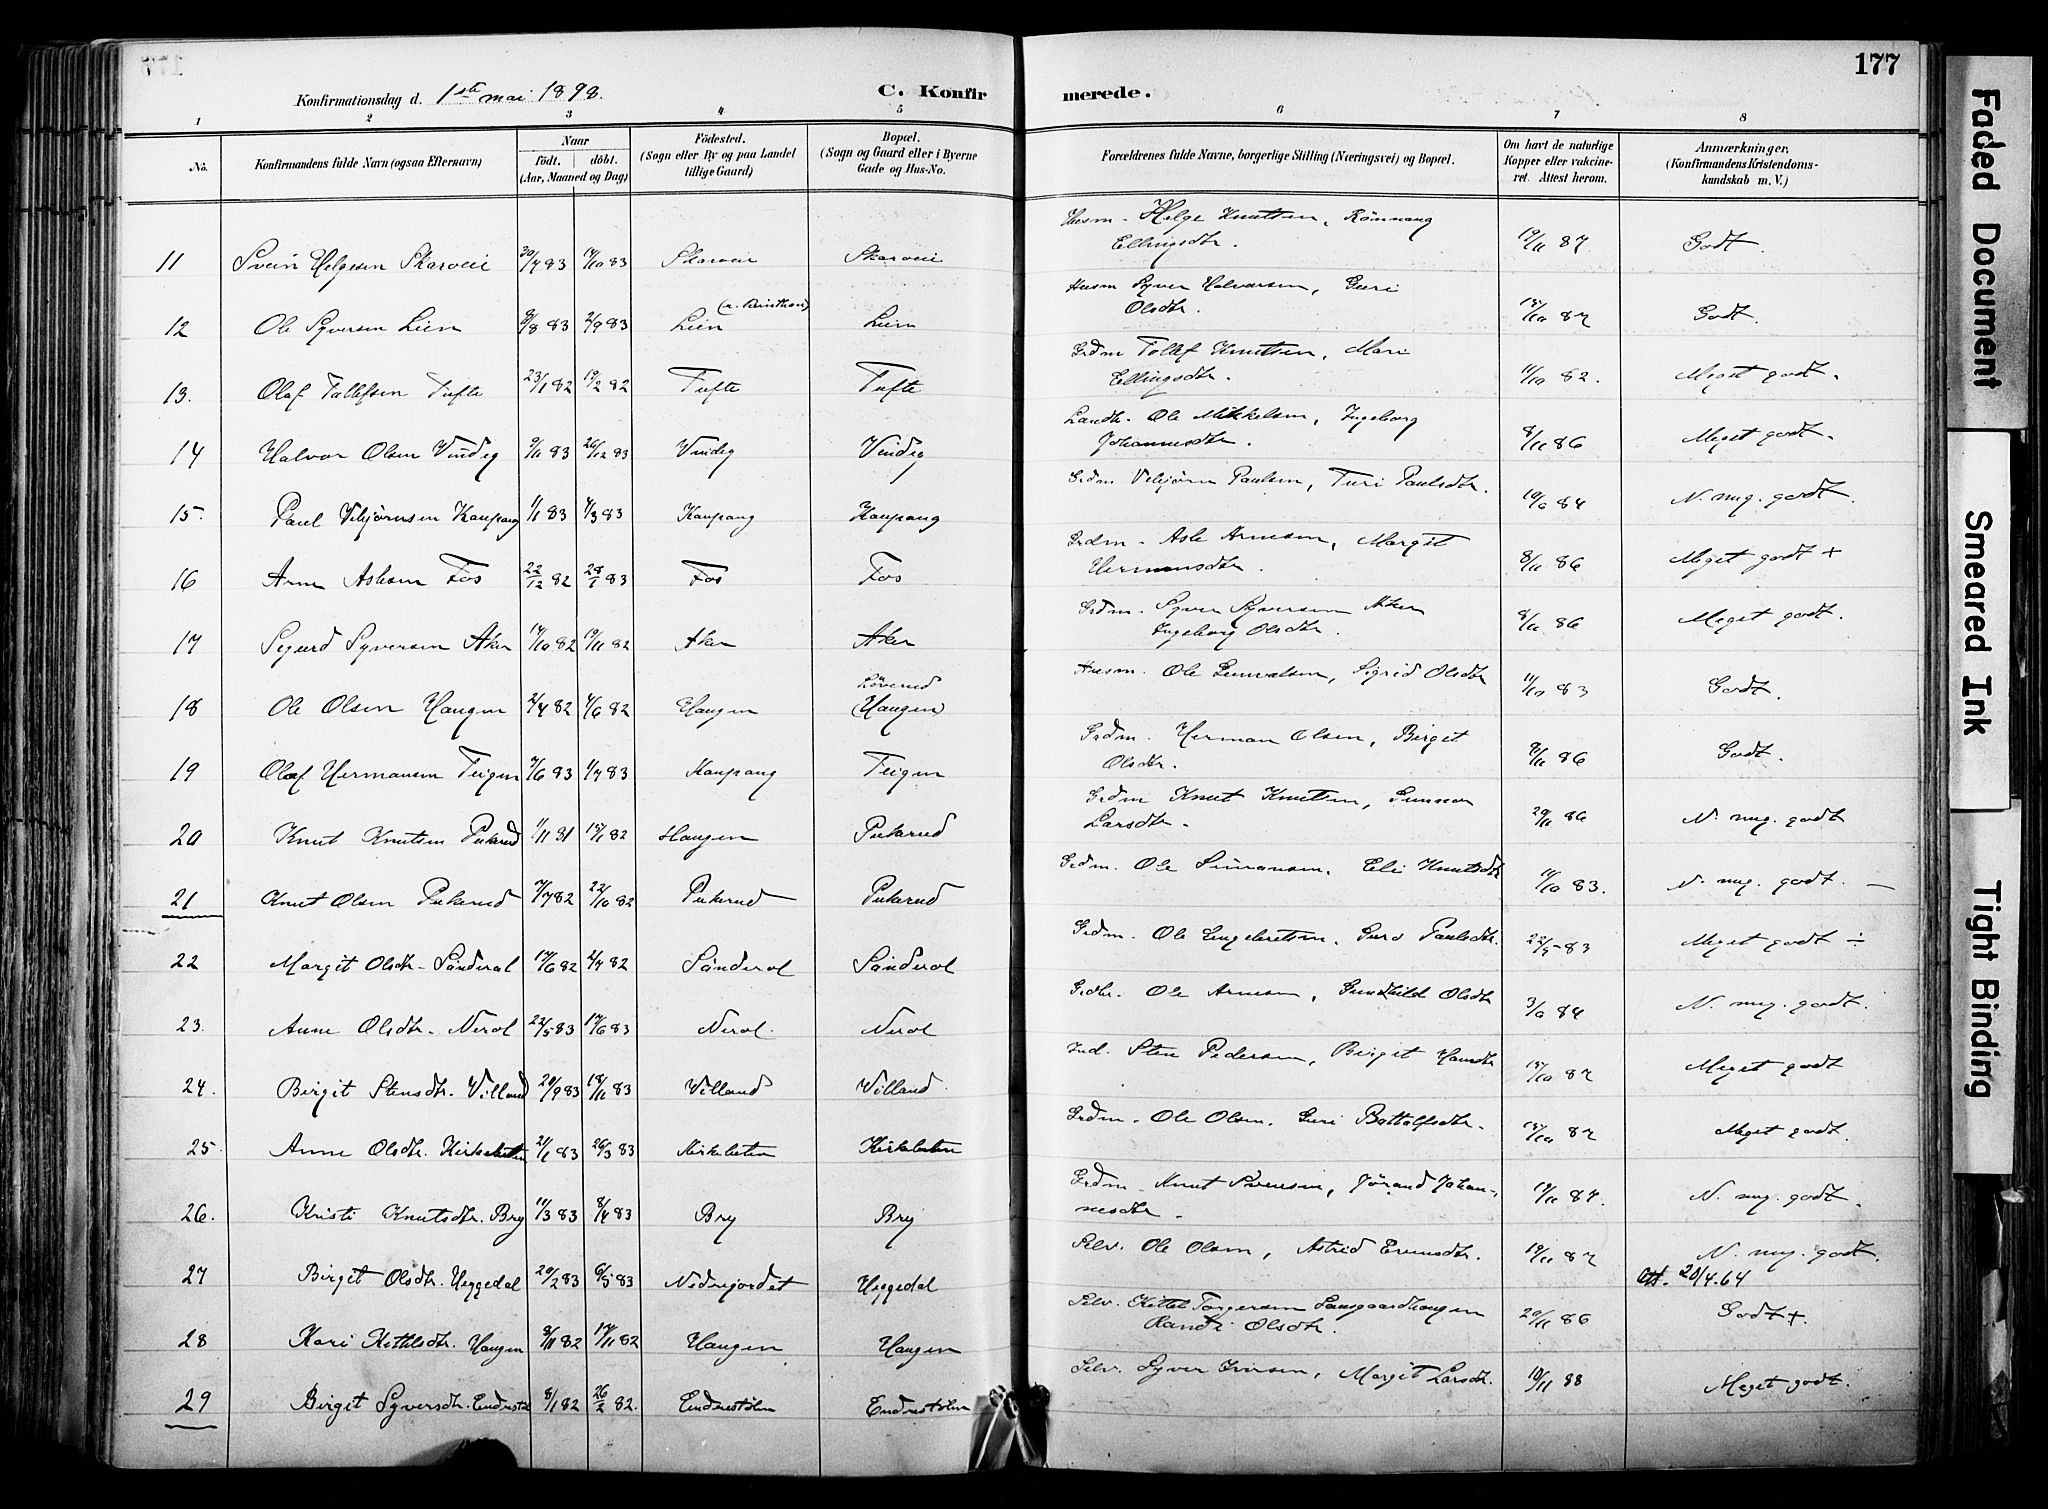 177
Konfirmationsdag d. 1ste mai 1898.
C. Konfirmerede.
1 2 3 4 5 6 7 8
No. Konfirmandens fulde Navn (ogsaa Efternavn) Naar födt. döbt. (Aar, Maaned og Dag) Födested. (Sogn eller By og paa Landet tillige Gaard) Bopæl. (Sogn og Gaard eller i Byerne Gade og Hus-No. Forældrenes fulde Navne, borgerlige Stilling (Næringsvei) og Bopæl. Om havt de naturlige Kopper eller vakcineret. Attest herom. Anmærkninger, (Konfirmandens Kristendomskundskab m. V.)
11 Svein Helgesen Skarveie 30/7 83 83 Skarveie Skarveie Husm. Helge Knutsen, Rönnaug Ellingsdtr. 19/11 87 Godt.
12 Ole Syversen Lien /8 83 2/9 83 Lien Lien Husm Syver Halvorsen, Guri Olsdtr. 18/10 87 Godt.
13. Olaf Tollefsen Tufte 23/1 82 19/2 82 Tufte Tufte Grdm Tollef Knutsen, Mari Ellingsdtr. 11/10 82. Meget godt.
14 Halvor Olsen Vindeg 9/11 83 26/12 83 Vindeg Vindeg Landh. Ole Mikkelsen, Ingeborg Johannesdtr. 8/11 86 Meget godt.
15. Paul Vebjørnsen Kaupang 1/1 83 4/3 83 Kaupang Kaupang Grdm Vebjørn Paulsen, Turi Paulsdtr. 19/6 84 N. mg. godt.
16 Arne Aslesen Fos 22/12 82 28/1 83 Fos Fos Grdm. Asle Arnesen, Margit Hermansdtr. 8/11 86 Meget godt +
17 Sigurd Syversen Aker 17/10 82 19/11 82 Aker Aker Grdm. Syver Syversen Aker Ingeborg Olsdtr. 8/11 86 Meget godt.
18 Ole Olsen Haugen 2/4 82 4/6 82 Haugen Löverud (Haugen) Husm. Ole Gunvalsen, Sigrid Olsdtr 11/10 83 Godt.
19 Olaf Hermansen Teigen 7/6 83 1/7 83 Kaupang Teigen Grdm. Herman Olsen, Birget Olsdtr. 8/11 86 Godt.
20 Knut Knutsen Pukerud 1/11 81 15/1 82 Haugen Pukerud Grdm Knut Knutsen, Gunnor Larsdtr. 20/11 86 N. mg. godt
21 Knut Olsen Pukerud 7/7 82 22/10 82 Pukerud Pukerud Grdm. Ole Simonsen, Eli Knutsdtr 11/10 83. N. mg. godt. —
22 Margit Olsdtr. Sönderol /6 82 2/7 82 Sönderol Sönderol Grdm. Ole Engebretsen, Guro Paulsdtr. 22/5 83 Meget godt ÷
23. Anne Olsdtr. Nerol 22/5 83 17/6 83 Nerol. Nerol Grdbr. Ole Arnesen, Gunhild Olsdtr 3/6 84 N. mg. godt.
24. Birgit Stensdtr. Villand 20/9 83 18/11 83 Villand Villand Ind. Sten Pedersen, Birgit Hansdtr 18/10 87 Meget godt
25. Anne Olsdtr. Kirkebøten 21/1 83 26/3 83 Kirkebøten Kirkebøten Grdm. Ole Olsen, Guri Bottolfsdtr. 18/10 87 Meget godt.
26. Kristi Knutsdtr. Bry 11/3 83 8/4 83 Bry Bry Grdm. Knut Svensen, Jørand Johannesdtr. 19/11 87. N. mg. godt.
27 Birget Olsdtr. Heggedal 20/2 83 6/5 83 Nedrejordet Heggedal Selv. Ole Olsen, Astrid Evensdtr. 19/11 87 N. mg. godt. Att. 20/4.64
28 Kari Kittelsdtr. Haugen 9/11 82 19/11 82 Haugen Haugen Selv. Kittel Torgersen Sansgaardhaugen Randi Olsdtr. 20/11 86 Godt +.
29 Birget Syversdtr. Endrestøl 8/1 82 26/2 82. Endrestølen Endrestølen Selv. Syver Iversen, Margit Larsdtr. 10/11 88 Meget godt.
Faded Document
Smeared Ink
Tight Binding